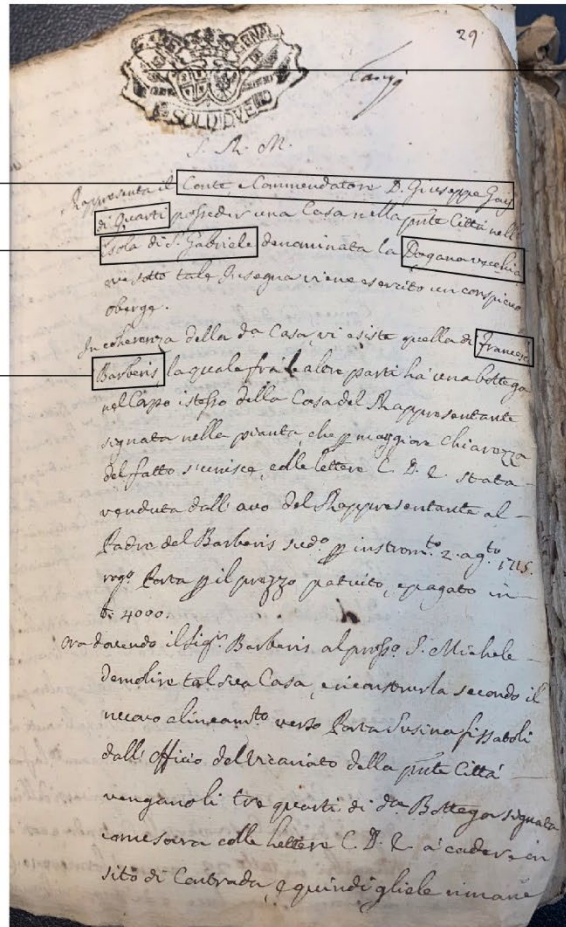 29
S. R. M.
Rappresenta il Conte e Commendatore D. Giuseppe
di Quarti posseder una Casa nella pnte Città nell'
Isola di S. Gabriele denominata la Dogana vecchia
ove sotto tale Insegna viene esercito un conspicuo
oberge.
In coerenza della da Casa, vi esiste quella di Francesco
Barberis la quale frà le altre parti hà una bottega
nel Corpo istesso della Casa del Rappresentante
signata nella pianta, che p maggiore chiarezza
del fatto s'unisce, colle lettere C. D. E. stata
venduta dall' avo del Rappresentante al
Padre del Barberis sudo p instromto 2. agto 1715.
rogo Porta p il prezzo patuito, e pagato in
4000.
Ora dovendo il Sigr Barberis al prosso S. Michele
demolire tal sua Casa, e ricostrurla secondo il
nuovo alineamto verso Porta Susina fissatoli
dall' Officio del Vicariato della pnte Città
vengano li tre quarti di da Bottega signata
come sovra colle lettere C. D. E. à cadere in
sito di Contrada, e quindi gliele rimane